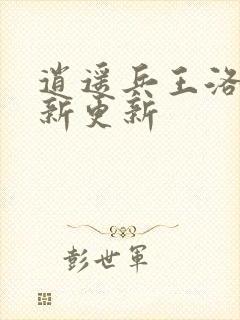 逍遥兵王洛
新更新
彭世军